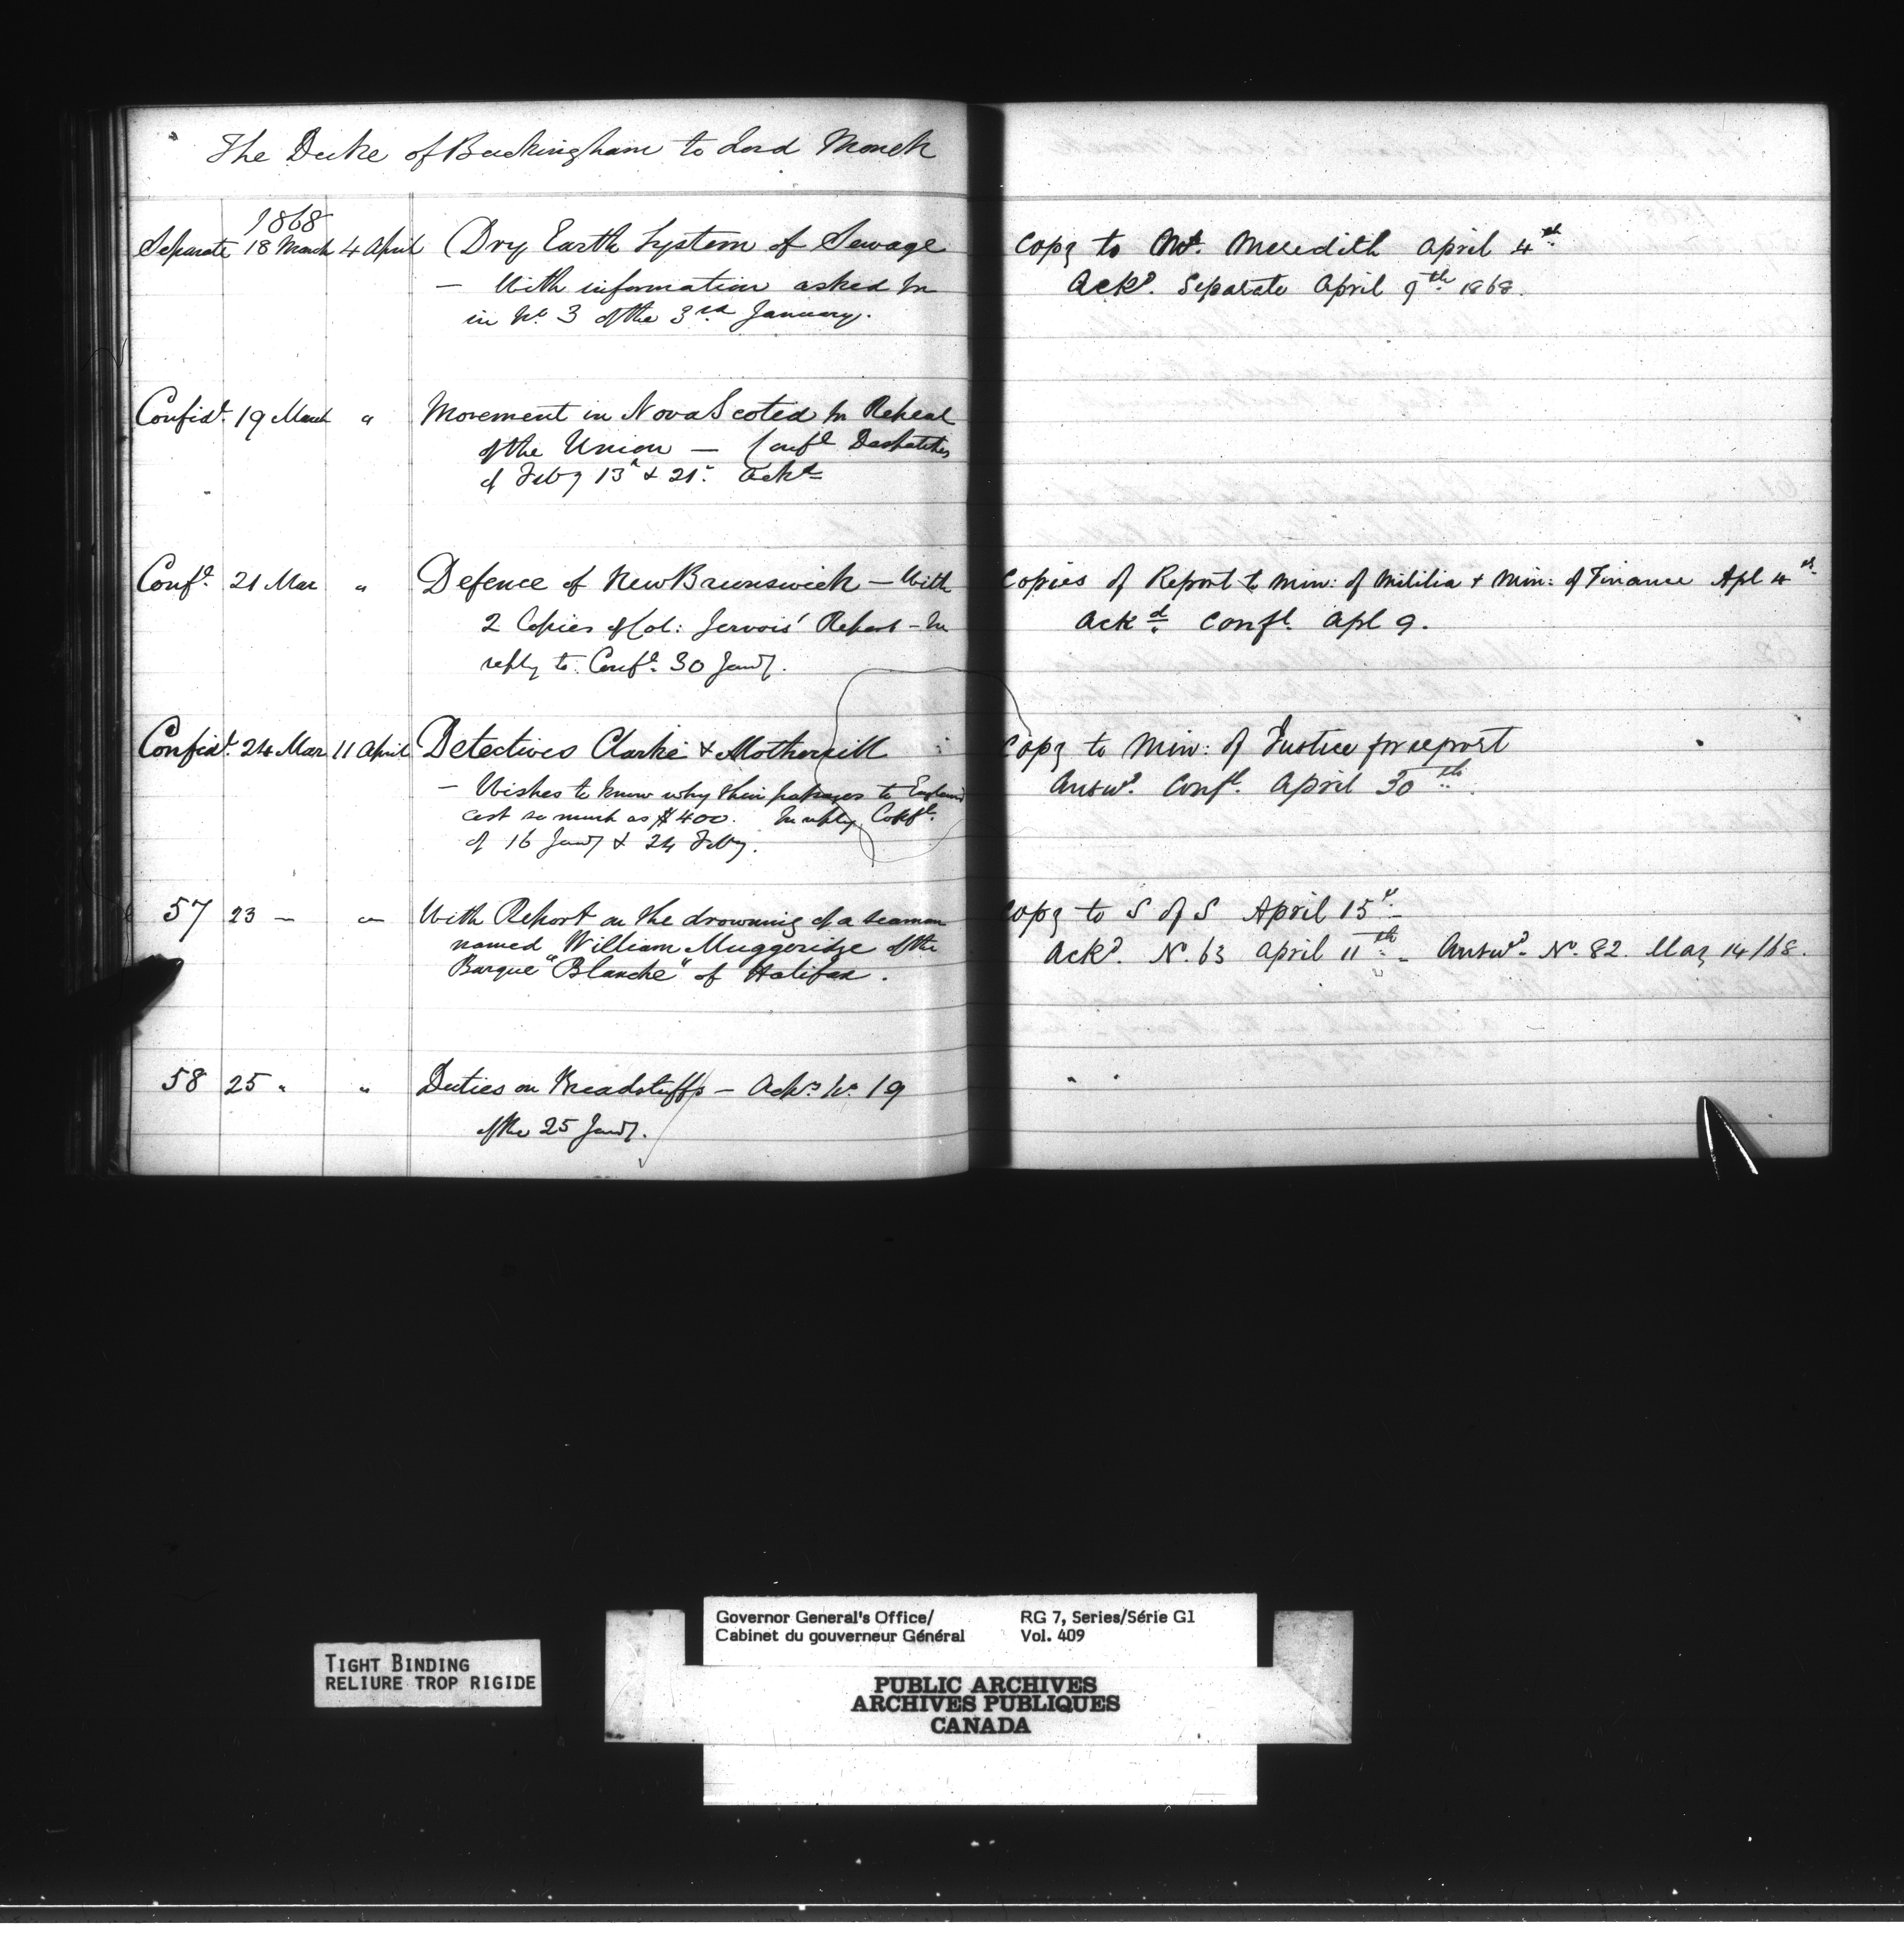 The Duke of Buckingham to Lord Monck
1868
Separate 18 March 4 April Dry Earth System of Sewage
— With information asked for
in No 3 of the 3rd January.
Copy to Mr. Meredith April 4th
Ackd. Separate April 9th 1868.
Confidl. 19 March " Movement in Nova Scotia for Repeal
of the Union — Confl Despatches
of Feby 13th & 21st. Ackd
Confl. 21 Mar " Defence of New Brunswick — With
2 Copies of Col: Jervois' Report — In
reply to Confl. 30 Jany.
Copies of Report to Min: of Militia & Min: of Finance Apl 4th
Ackd. Confl. Apl 9.
Confidl. 24 Mar 11 April Detectives Clarke & Mothersill
— Wishes to know why their passages to England
cost so much as $400. In reply Confl.
of 16 Jany & 24 Feby.
Copy to Min: of Justice for report
Answd. Confl. April 30th.
57 23 — " With Report on the drowning of a seaman
named William Muggeridge of the
Barque "Blanche" of Halifax.
Copy to S of S April 15th
Ackd. No. 63 April 11th — Answd. No. 82. May 14/68.
58 25 " " Duties on Breadstuffs — Ackg No. 19
of the 25 Jany.
TIGHT BINDING
RELIURE TROP RIGIDE
Governor General's Office/ RG 7, Series/Série G1
Cabinet du gouverneur Général Vol. 409
PUBLIC ARCHIVES
ARCHIVES PUBLIQUES
CANADA